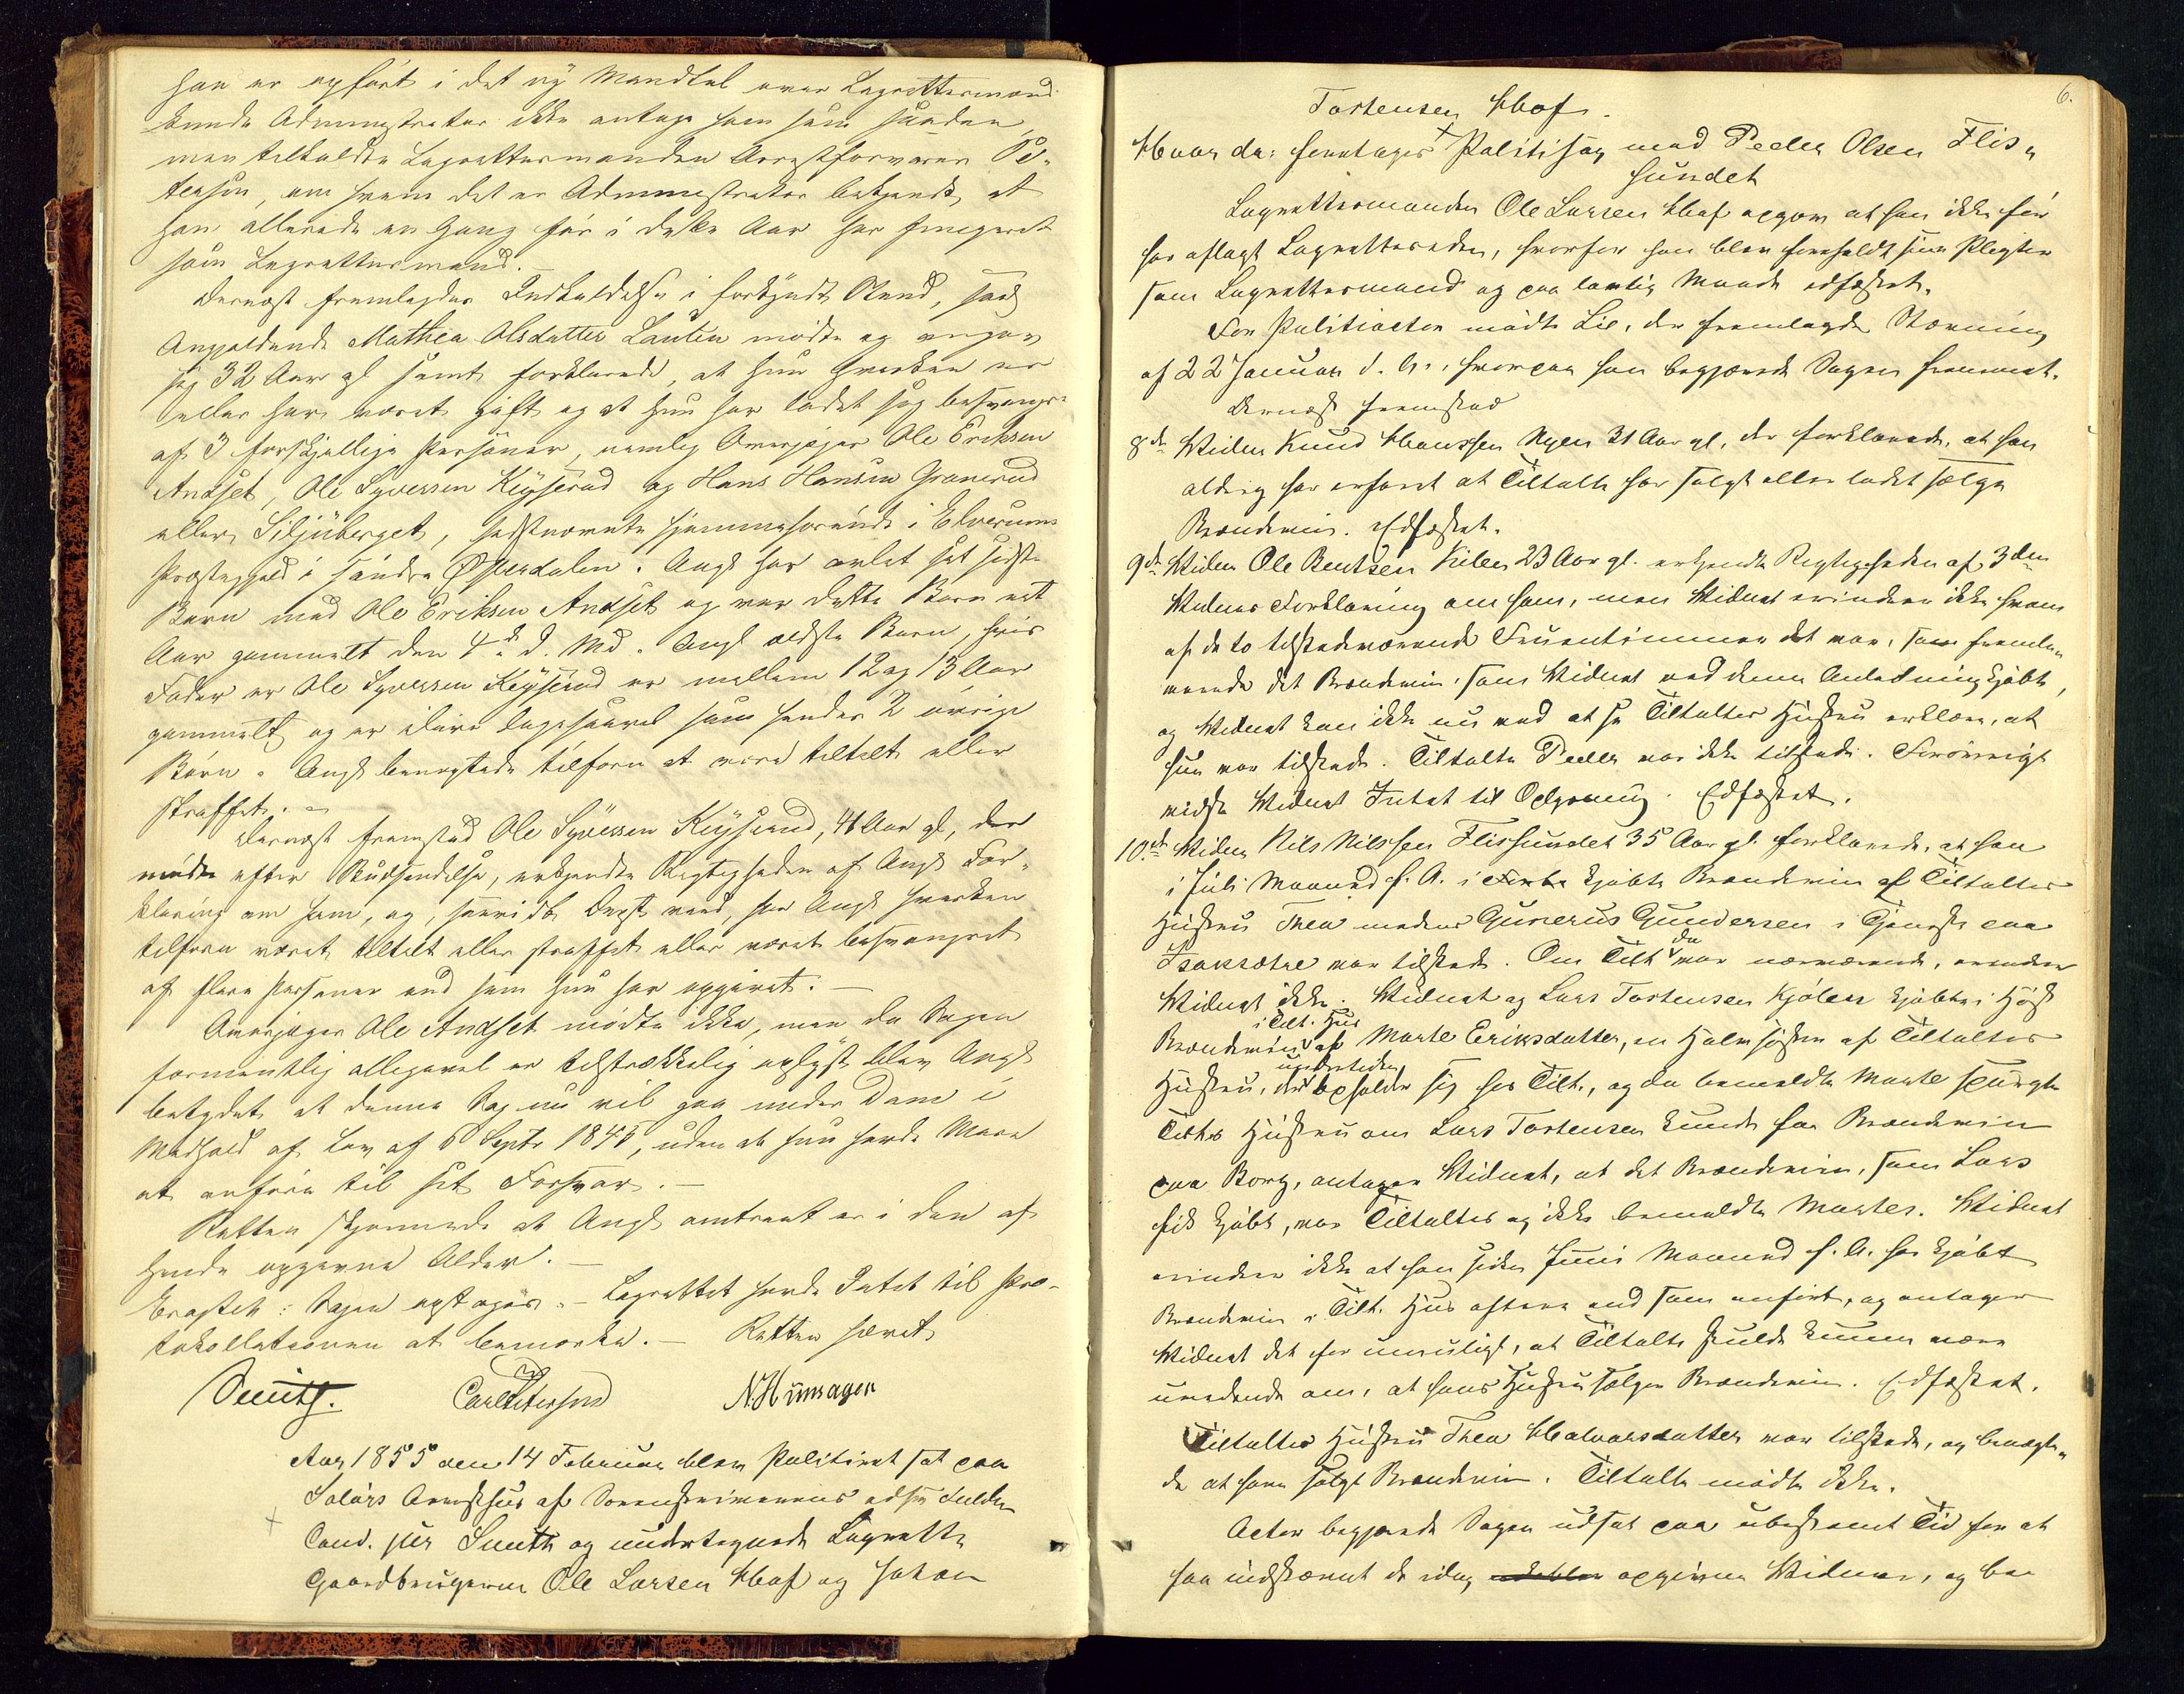 han er opført i det ny Mandtal over Lagrettesmænd
kunde Administrator ikke antage ham som saadan,
men tilkaldte Lagrettesmanden Arrestforvarer Pe-
terson, om hvem det er Administrator bekjendt, at
han allerede en Gang før i dette Aar har fungeret
som Lagrettesmand. –
Dernæst fremlagdes Indkaldelse i forkyndt Stand,
Angjældende Mathea Olsdatter Lauten mødte og angav
sig 32 Aar gl samt forklarede, at hun hverken er
eller har været gift og at hun har ladet sig besvangre
af 3 forskjellige Personer, nemlig Ole Eriksen
Andset, Ole Syversen Keyserud og Hans Hansen Granerud
eller Siljuberget, sidstnævnte hjemmehørende i Elverums
Præstegjeld i søndre Østerdalen. Angjl har avlet sit sidste
Barn med Ole Eriksen Andset og var dette Barn et
Aar gammelt den 4de d. Md. Angjl ældste Barn, hvis
Fader er Ole Syversen Keyserud er mellem 12 og 13 Aar
gammelt og er ilive ligesaavel som hendes 2 øvrige
Børn. Angjl benegtede tilforn at være tiltalt eller
straffet. –
Dernæst fremstod Ole Syversen Keyserud, 41 Aar gl, der
mødte efter Budsendelse, erkjendte Rigtigheden af Angjl For-
klaring om ham, og, saavidt Depst veed, har Angjl hverken
tilforn været tiltalt eller straffet eller været besvangret
af flere Personer end som hun har opgivet. –
Ole Andset mødte ikke, men da Sagen
formentlig alligevel er tilstrækkelig oplyst blev Angjl
betydet at denne Sag nu vil gaa under Dom i
Medhold af Lov af 6 Septr 1845, uden at hun havde Mere
at anføre til sit Forsvar. –
Retten skjønnede at Angjl omtrent er i den af
hende opgivne Alder. –
Eragtet: Sagen optages. – Lagrettet havde Intet til Pro-
tokollationen at bemærke. – Retten hævet
Smith. Carl Peterson N. Hunsagen
Aar 1855 den 14 Februar blev Politiret sat paa
Solørs Arresthus af Sorenskriverens edsv Fuldm
Cand. jur Smith og undertegnede Lagrette
Gaardbrugerne Ole Larsen Hof og Johan
6.
Torstensen Hof.
Hvor da: foretages Politisag mod Peder Olsen Flis-
sundet
Lagrettesmanden Ole Larsen Hof opgav at han ikke før
har aflagt Lagretteseden, hvorfor han blev foreholdt sine Pligter
som Lagrettesmand og paa lovlig Maade edfæstet.
For Politiactor mødte Lie, der fremlagde Stævning
af 22 Januar d. A., hvorpaa han begjærede Sagen fremmet.
Dernæst fremstod
8de Vidne Knud Hanssen Nyen 31 Aar gl, der forklarede, at han
aldrig har erfaret at Tiltalte har solgt eller ladet sælge
Brændeviin. Edfæstet.
9de Vidne Ole Bentsen Kilen 23 Aar gl. erkjendte Rigtigheden af 3die
Vidnes Forklaring om ham, men Vidnet erindrer ikke hvem
af de to tilstedeværende Fruentimmer det var, som fremle-
verede det Brændeviin, som Vidnet ved denne Anledning kjøbte,
og Vidnet kan ikke nu ved at se Tiltaltes Hustru erklære, at
hun var tilstede. Tiltalte Peder var ikke tilstede. Forøvrigt
vidste Vidnet Intet til Oplysning. Edfæstet.
10de Vidne Nils Nilssen Flissundet 35 Aar gl. forklarede, at han
i Juli Maaned f. A. i kjøbte Brændeviin af Tiltaltes
Hustru Thea medens Gunerus Gundersen i Tjeneste paa
Isaksætre var tilstede. Om Tilt da var nærværende, erindrer
Vidnet ikke. Vidnet og Lars Torstensen Kjølen kjøbte i Høst
Brændeviin i Tilt. Hus af Marte Eriksdatter, en Halvsøster af Tiltaltes
Hustru, der undertiden opholder sig hos Tilt., og da bemeldte Marte spurgte
Tilts Hustru om Lars Torstensen kunde faa Brændeviin
paa Borg, antager Vidnet, at det Brændeviin, som Lars
fik kjøbt, var Tiltaltes og ikke bemeldte Martes. Vidnet
erindrer ikke at han siden Juni Maaned f. A. har kjøbt
Brændeviin i Tilt. Hus oftere end som anført, og antager
Vidnet det for umuligt, at Tiltalte skulde kunne være
uvidende om, at hans Hustru sælger Brændeviin. Edfæstet.
Tiltaltes Hustru Thea Halvorsdatter var tilstede, og benægte-
de at have solgt Brændeviin. Tiltalte mødte ikke.
Actor begjærede Sagen udsat paa ubestemt Tid for at
faa indstævnet de idag opgivne Vidner, og bae